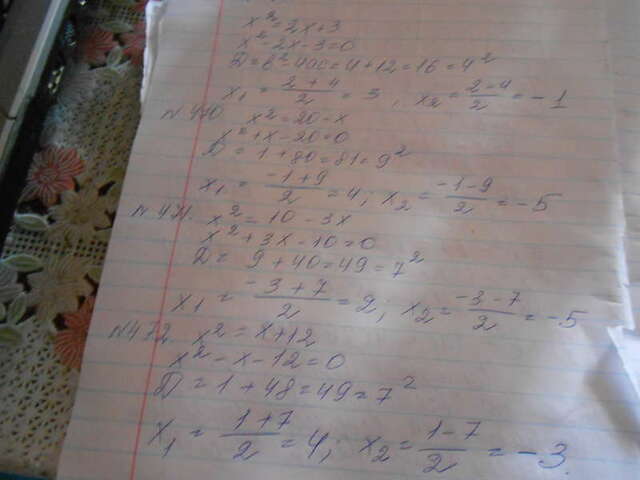 x² = 2x+3
x² - 2x - 3 = 0
D = b² - 4ac = 4+12 = 16 = 4²
x₁ = (2+4)/2 = 3, x₂ = (2-4)/2 = -1
N 470 x² = 20 - x
x² + x - 20 = 0
D = 1 + 80 = 81 = 9²
x₁ = (-1+9)/2 = 4; x₂ = (-1-9)/2 = -5
N 471. x² = 10 - 3x
x² + 3x - 10 = 0
D = 9 + 40 = 49 = 7²
x₁ = (-3+7)/2 = 2; x₂ = (-3-7)/2 = -5
N 472. x² = x+12
x² - x - 12 = 0
D = 1 + 48 = 49 = 7²
x₁ = (1+7)/2 = 4; x₂ = (1-7)/2 = -3.